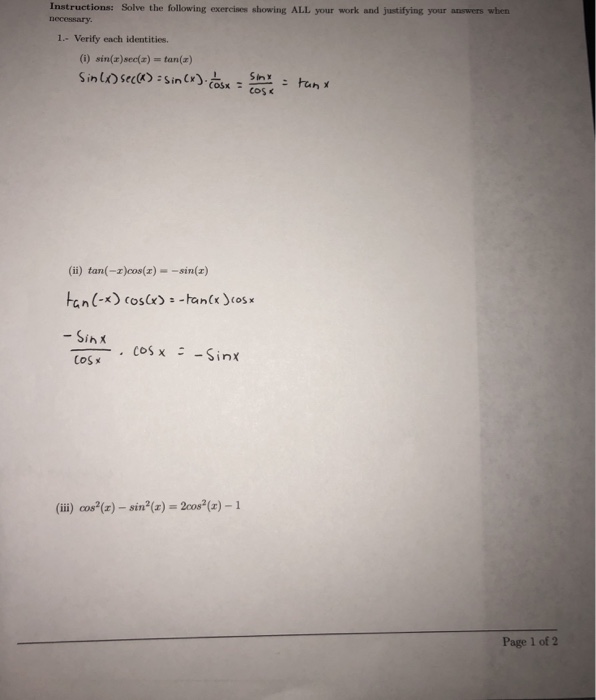 Instructions: Solve the following exercises showing ALL your work and justifying your answers when
necessary.
1.- Verify each identities.
(i) sin(x)sec(x) = tan(x)
Sin(x) sec(x) = sin(x) · 1/cosx = sinx/cosx = tan x
(ii) tan(−x)cos(x) = −sin(x)
tan(-x) cos(x) = -tan(x) cosx
- Sinx/cosx · cos x = - Sinx
(iii) cos²(x) − sin²(x) = 2cos²(x) − 1
Page 1 of 2